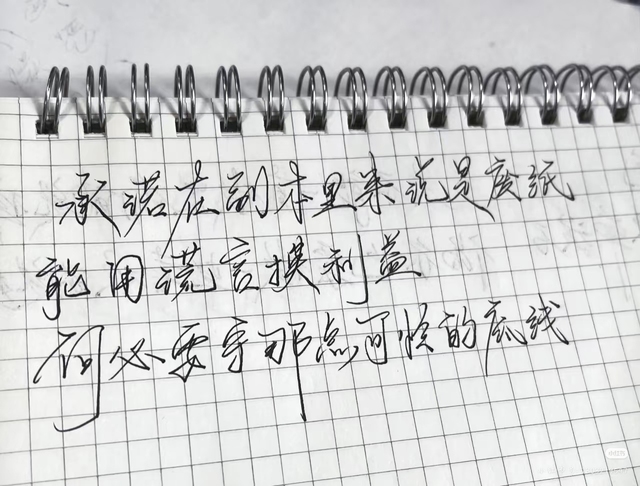 承诺在剧本里来说是废纸
能用谎言换利益
何必要守那点可怜的底线
小红书